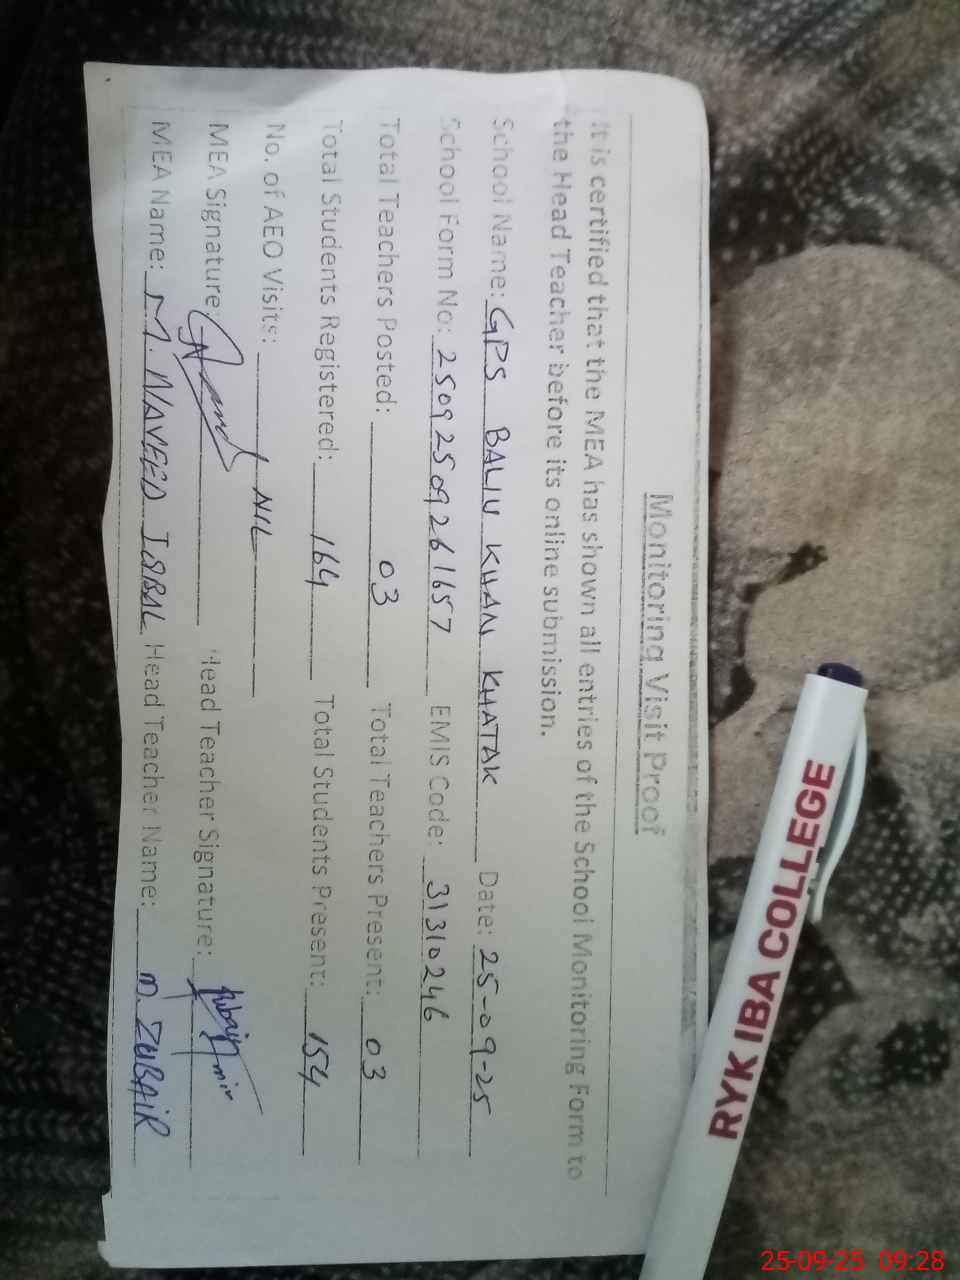 Monitoring Visit Proof
It is certified that the MEA has shown all entries of the School Monitoring Form to
the Head Teacher before its online submission.
School Name: GPS BALIU KHAN KHATAK Date: 25-09-25
School Form No: 25092509261657 EMIS Code: 31310246
Total Teachers Posted: 03 Total Teachers Present: 03
Total Students Registered: 164 Total Students Present: 154
No. of AEO Visits: NIL
MEA Signature: Head Teacher Signature:
MEA Name: M. NAVEED IQBAL Head Teacher Name: M. ZUBAIR
RYK IBA COLLEGE
25-09-25 09:28